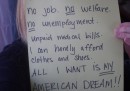 no job. no welfare.
no unemployment
Unpaid medical bills
I can hardly afford
clothes and shoes.
ALL I WANT IS MY
AMERICAN DREAM!!